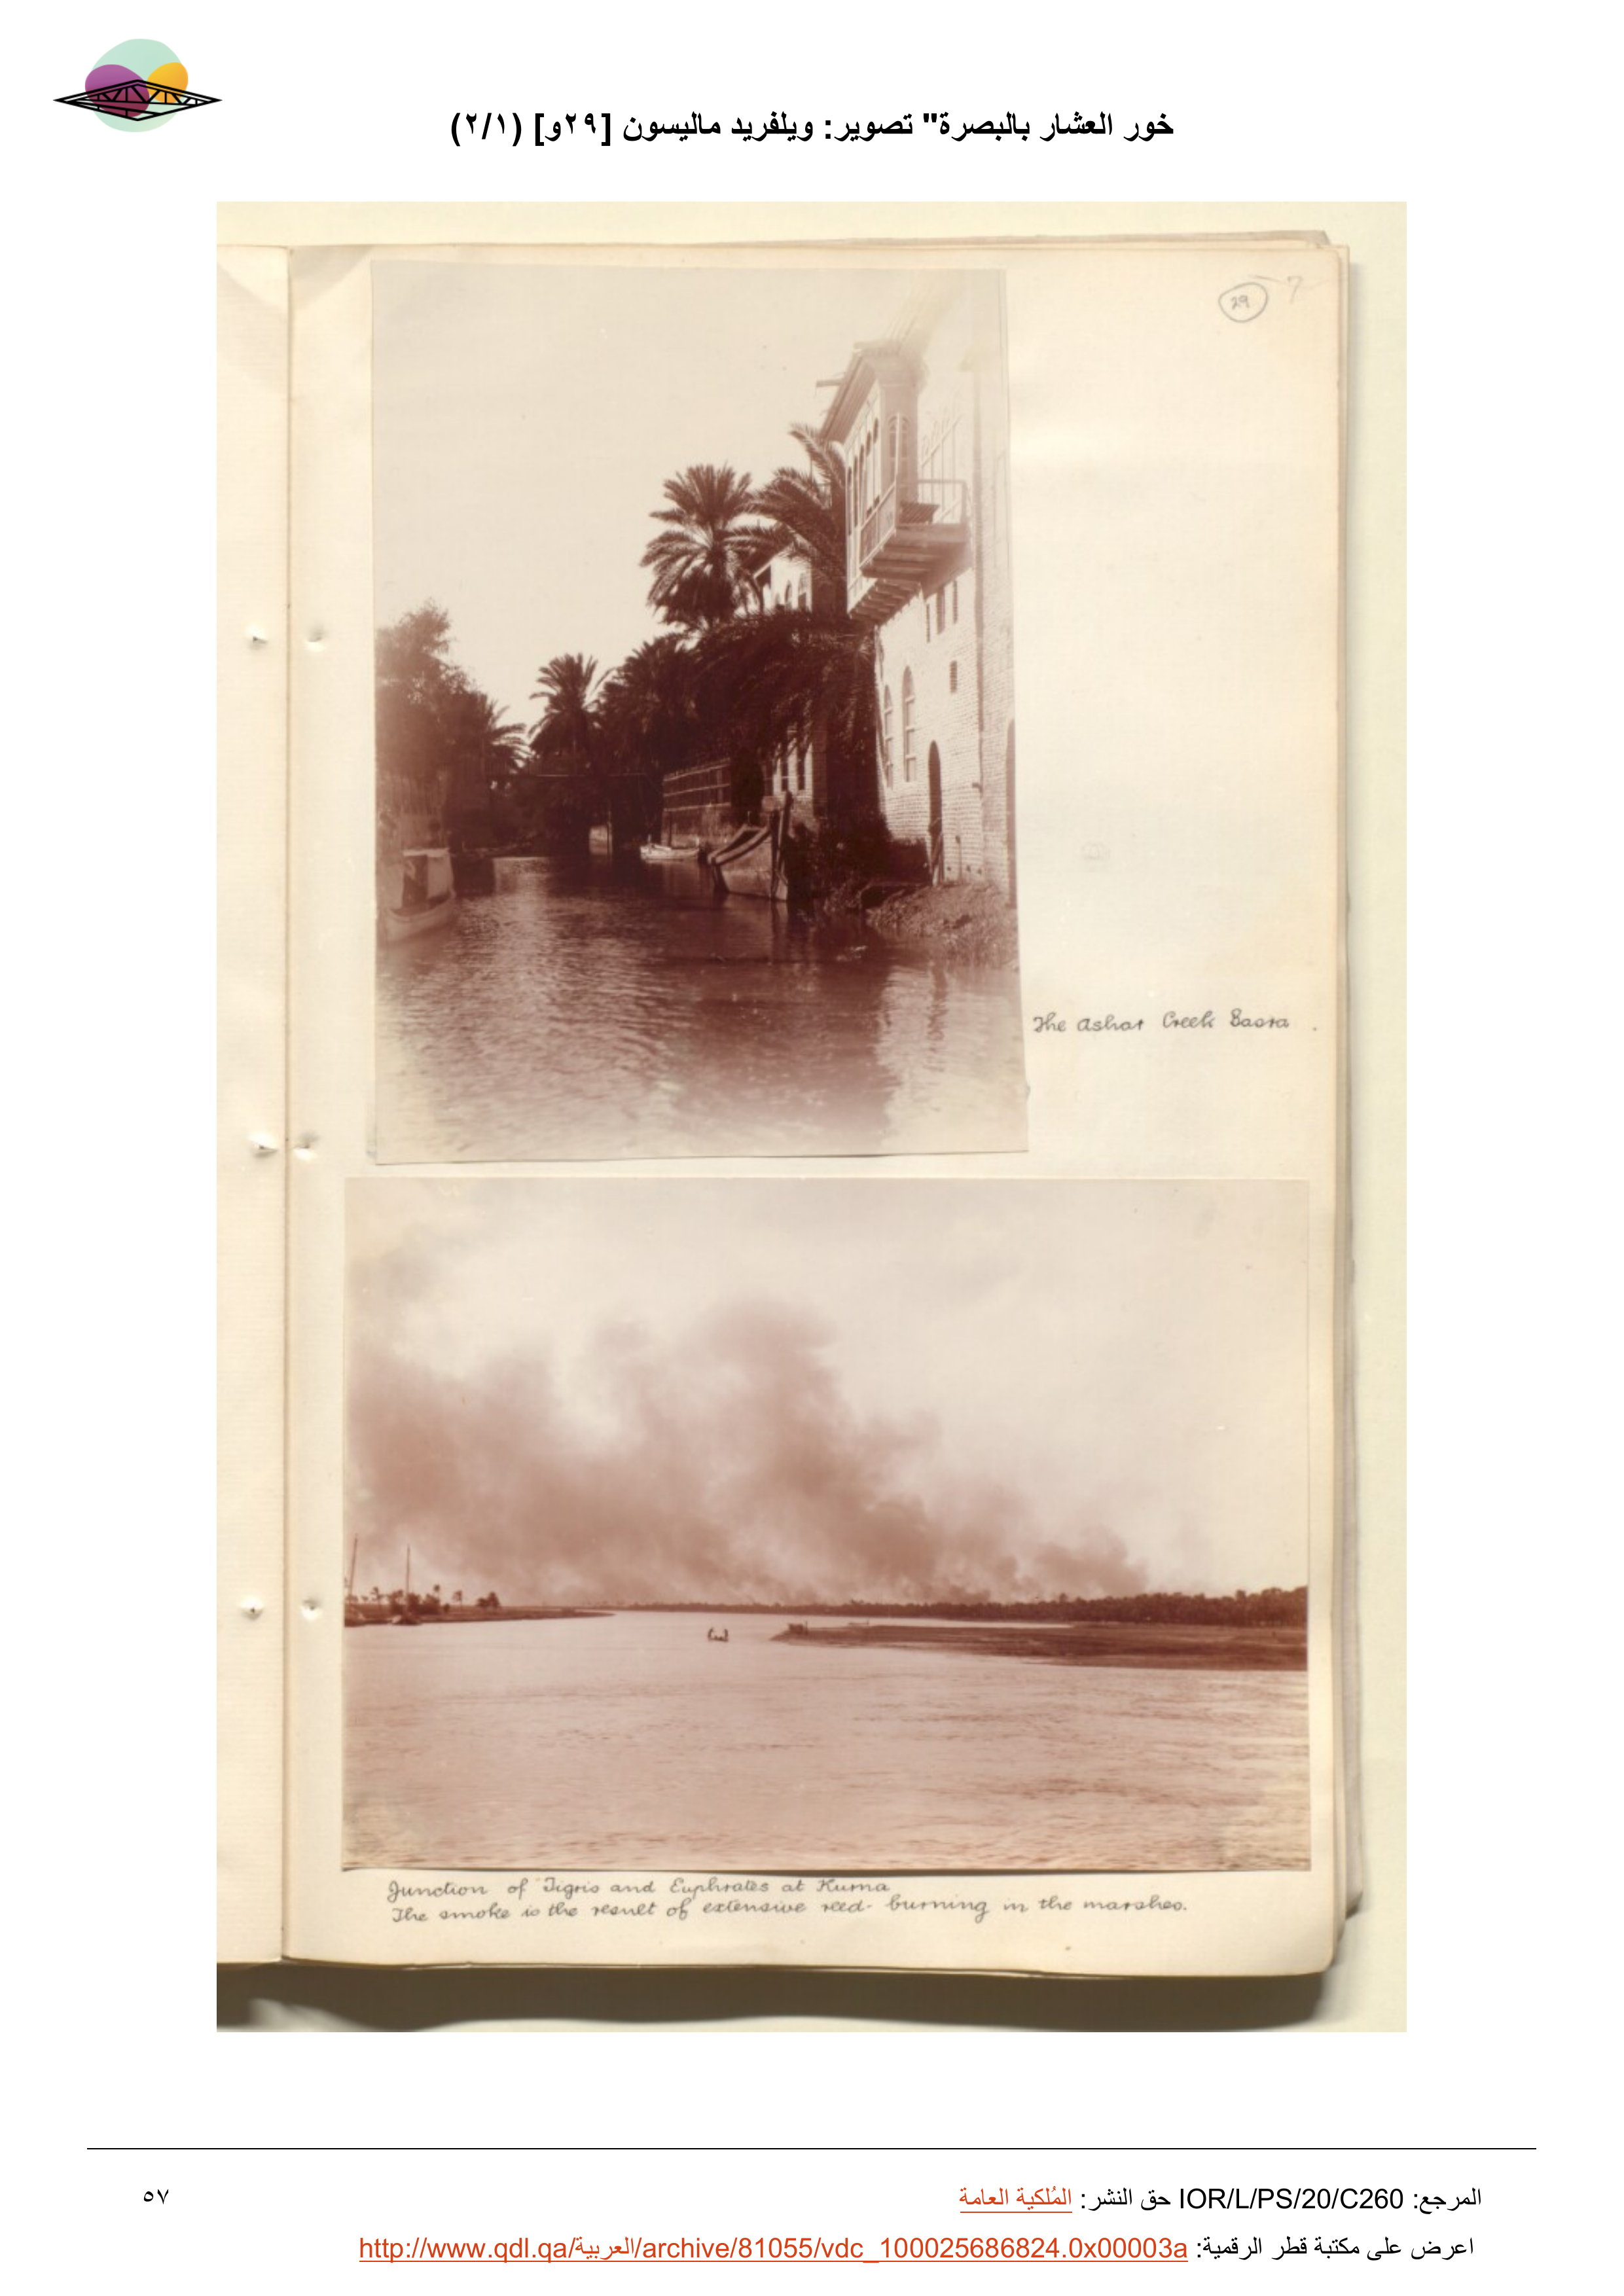 خور العشار بالبصرة" تصوير: ويلفريد ماليسون [٢٩و] (٢/١)
29 7
The Ashar Creek Basra .
Junction of Tigris and Euphrates at Kurna
The smoke is the result of extensive reed-burning in the marshes.
المرجع: IOR/L/PS/20/C260 حق النشر: المُلكية العامة
٥٧
اعرض على مكتبة قطر الرقمية: http://www.qdl.qa/العربية/archive/81055/vdc_100025686824.0x00003a